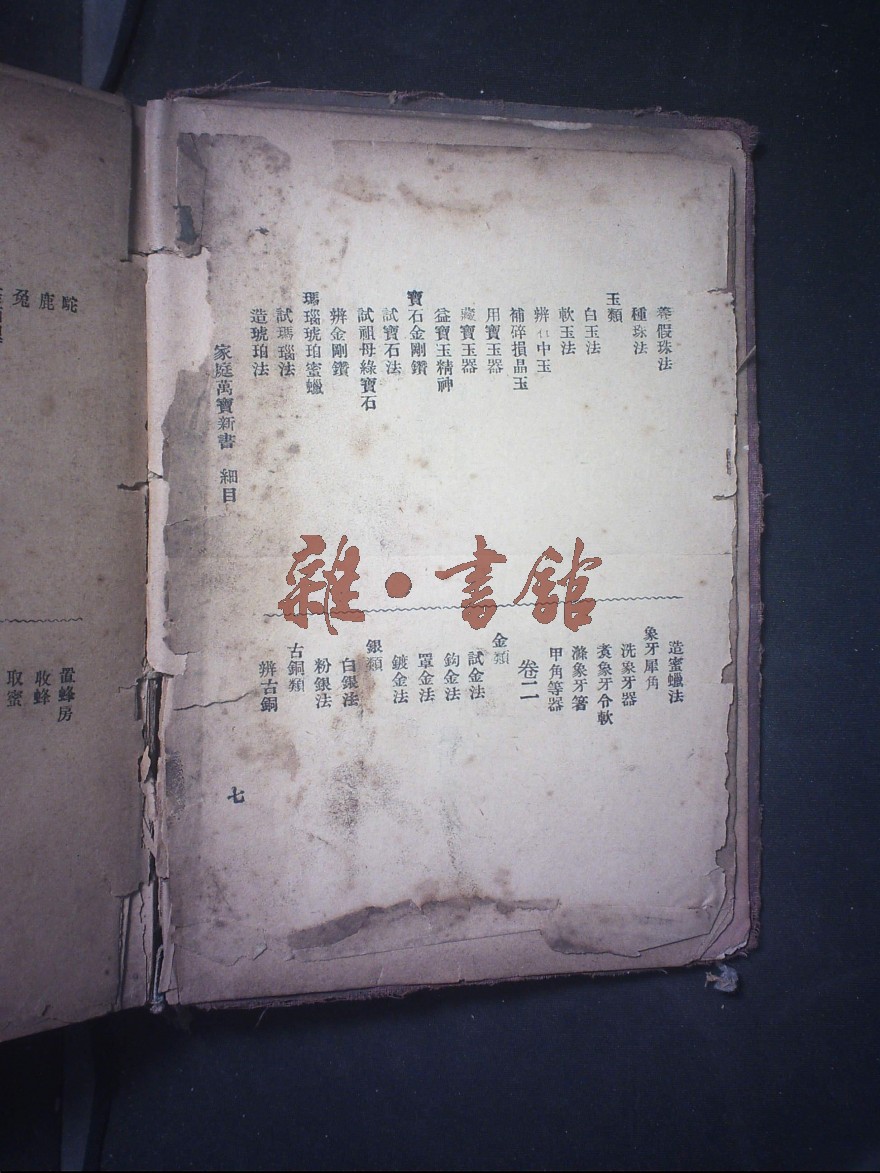 養假珠法
種珠法
玉類
白玉法
軟玉法
辨 中玉
補碎損晶玉
用寶玉器
藏寶玉器
益寶玉精神
寶石金剛鑽
試寶石法
試祖母綠寶石
辨金剛鑽
瑪瑙琥珀蜜蠟
試瑪瑙法
造琥珀法
造蜜蠟法
象牙犀角
洗象牙器
煑象牙令軟
滌象牙箸
甲角等器
卷二
金類
試金法
鈎金法
罩金法
鍍金法
銀類
白銀法
粉銀法
古銅類
辨古銅
家庭萬寶新書 細目
七
雜·書舘
鹿
置蜂房
收蜂
取蜜